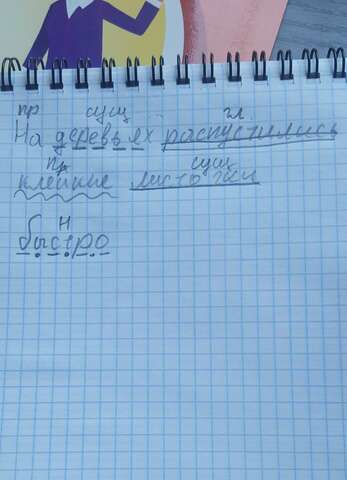 пр сущ гл
На деревьях распустились
пр сущ
клейкие листочки
н
быстро